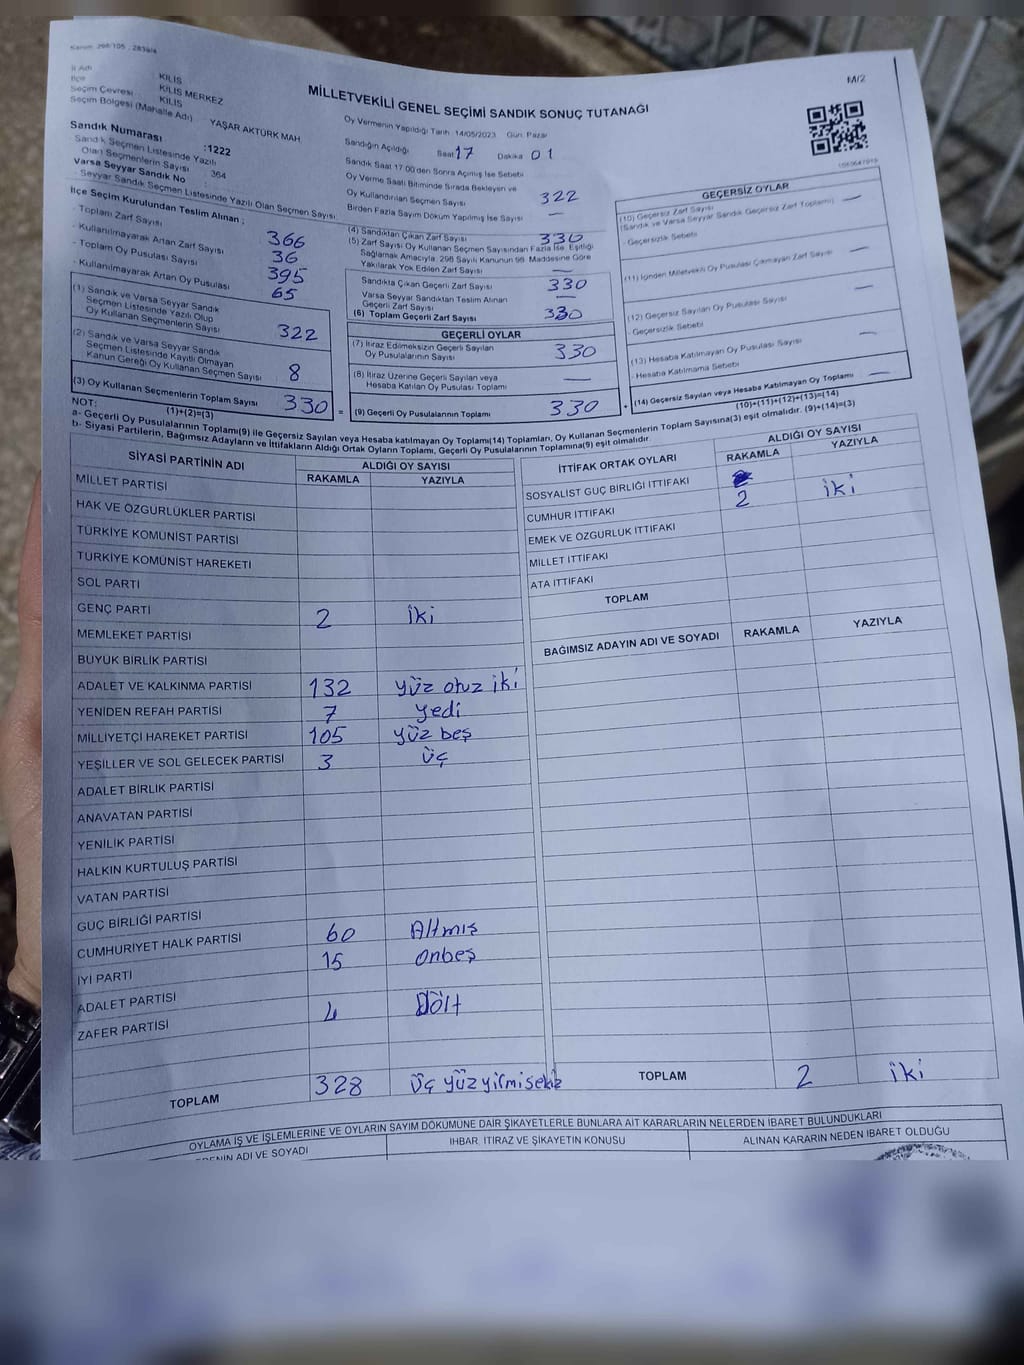 Kanun: 298/105 , 2839/4
M/2
İl Adı KİLİS
İlçe KİLİS MERKEZ
Seçim Çevresi KİLİS
Seçim Bölgesi (Mahalle Adı) YAŞAR AKTÜRK MAH.
Sandık Numarası :1222
Sandık Seçmen Listesinde Yazılı
Olan Seçmenlerin Sayısı 364
Varsa Seyyar Sandık No :
- Seyyar Sandık Seçmen Listesinde Yazılı Olan Seçmen Sayısı
MİLLETVEKİLİ GENEL SEÇİMİ SANDIK SONUÇ TUTANAĞI
Oy Vermenin Yapıldığı Tarih: 14/05/2023 Gün: Pazar
Sandığın Açıldığı Saat 17 Dakika 01
Sandık Saat 17.00'den Sonra Açılmış İse Sebebi
Oy Verme Saati Bitiminde Sırada Bekleyen ve
Oy Kullandırılan Seçmen Sayısı 322
Birden Fazla Sayım Döküm Yapılmış İse Sayısı —
İlçe Seçim Kurulundan Teslim Alınan ;
- Toplam Zarf Sayısı 366
- Kullanılmayarak Artan Zarf Sayısı 36
- Toplam Oy Pusulası Sayısı 395
- Kullanılmayarak Artan Oy Pusulası 65
(1) Sandık ve Varsa Seyyar Sandık
Seçmen Listesinde Yazılı Olup
Oy Kullanan Seçmenlerin Sayısı 322
(2) Sandık ve Varsa Seyyar Sandık
Seçmen Listesinde Kayıtlı Olmayan
Kanun Gereği Oy Kullanan Seçmen Sayısı 8
(3) Oy Kullanan Seçmenlerin Toplam Sayısı 330 =
(1)+(2)=(3)
(4) Sandıktan Çıkan Zarf Sayısı 330
(5) Zarf Sayısı Oy Kullanan Seçmen Sayısından Fazla İse, Eşitliği
Sağlamak Amacıyla, 298 Sayılı Kanunun 98. Maddesine Göre
Yakılarak Yok Edilen Zarf Sayısı —
Sandıkta Çıkan Geçerli Zarf Sayısı 330
Varsa Seyyar Sandıktan Teslim Alınan
Geçerli Zarf Sayısı —
(6) Toplam Geçerli Zarf Sayısı 330
GEÇERLİ OYLAR
(7) İtiraz Edilmeksizin Geçerli Sayılan
Oy Pusulalarının Sayısı 330
(8) İtiraz Üzerine Geçerli Sayılan veya
Hesaba Katılan Oy Pusulası Toplamı —
(9) Geçerli Oy Pusulalarının Toplamı 330 +
GEÇERSİZ OYLAR
(10) Geçersiz Zarf Sayısı —
(Sandık ve Varsa Seyyar Sandık Geçersiz Zarf Toplamı)
- Geçersizlik Sebebi
(11) İçinden Milletvekili Oy Pusulası Çıkmayan Zarf Sayısı —
(12) Geçersiz Sayılan Oy Pusulası Sayısı —
- Geçersizlik Sebebi
(13) Hesaba Katılmayan Oy Pusulası Sayısı —
- Hesaba Katılmama Sebebi
(14) Geçersiz Sayılan veya Hesaba Katılmayan Oy Toplamı —
(10)+(11)+(12)+(13)=(14)
NOT:
a- Geçerli Oy Pusulalarının Toplamı(9) ile Geçersiz Sayılan veya Hesaba katılmayan Oy Toplamı(14) Toplamları, Oy Kullanan Seçmenlerin Toplam Sayısına(3) eşit olmalıdır. (9)+(14)=(3)
b- Siyasi Partilerin, Bağımsız Adayların ve İttifakların Aldığı Ortak Oyların Toplamı, Geçerli Oy Pusulalarının Toplamına(9) eşit olmalıdır.
SİYASİ PARTİNİN ADI ALDIĞI OY SAYISI
RAKAMLA YAZIYLA
MİLLET PARTİSİ
HAK VE ÖZGÜRLÜKLER PARTİSİ
TÜRKİYE KOMÜNİST PARTİSİ
TÜRKİYE KOMÜNİST HAREKETİ
SOL PARTİ
GENÇ PARTİ 2 iki
MEMLEKET PARTİSİ
BÜYÜK BİRLİK PARTİSİ
ADALET VE KALKINMA PARTİSİ 132 yüz otuz iki
YENİDEN REFAH PARTİSİ 7 yedi
MİLLİYETÇİ HAREKET PARTİSİ 105 yüz beş
YEŞİLLER VE SOL GELECEK PARTİSİ 3 üç
ADALET BİRLİK PARTİSİ
ANAVATAN PARTİSİ
YENİLİK PARTİSİ
HALKIN KURTULUŞ PARTİSİ
VATAN PARTİSİ
GÜÇ BİRLİĞİ PARTİSİ
CUMHURİYET HALK PARTİSİ 60 Altmış
İYİ PARTİ 15 onbeş
ADALET PARTİSİ
ZAFER PARTİSİ 4 Dört
TOPLAM 328 üç yüz yirmisekiz
İTTİFAK ORTAK OYLARI ALDIĞI OY SAYISI
RAKAMLA YAZIYLA
SOSYALİST GÜÇ BİRLİĞİ İTTİFAKI
CUMHUR İTTİFAKI 2 iki
EMEK VE ÖZGÜRLÜK İTTİFAKI
MİLLET İTTİFAKI
ATA İTTİFAKI
TOPLAM
BAĞIMSIZ ADAYIN ADI VE SOYADI RAKAMLA YAZIYLA
TOPLAM 2 iki
OYLAMA İŞ VE İŞLEMLERİNE VE OYLARIN SAYIM DÖKÜMÜNE DAİR ŞİKAYETLERLE BUNLARA AİT KARARLARIN NELERDEN İBARET BULUNDUKLARI
ADI VE SOYADI İHBAR, İTİRAZ VE ŞİKAYETİN KONUSU ALINAN KARARIN NEDEN İBARET OLDUĞU